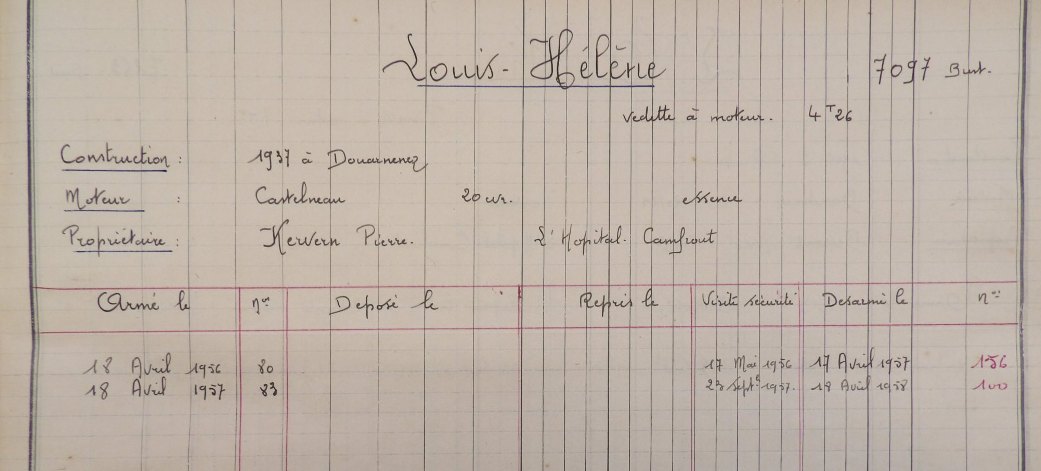 Louis-Hélène 7097 Brest.
vedette à moteur. 4 T 26
Construction : 1937 à Douarnenez
Moteur : Castelneau 20 cv. essence
Propriétaire : Kervern Pierre. L'Hopital-Camfrout
Armé le nos Deposé le Repris le Visite sécurité Desarmé le nos
18 Avril 1956 80 17 Mai 1956 17 Avril 1957 156
18 Avril 1957 83 23 Septe 1957. 18 Avril 1958 100